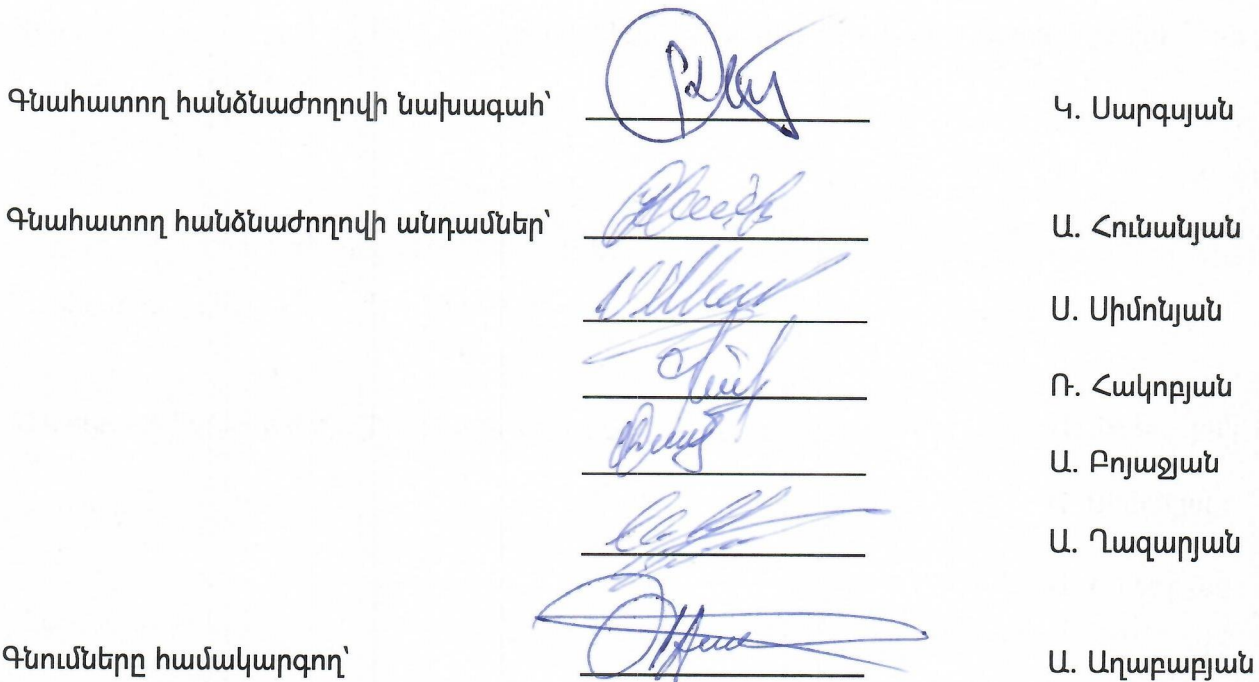 Գնահատող հանձնաժողովի նախագահ՝ Կ. Սարգսյան
Գնահատող հանձնաժողովի անդամներ՝ Ա. Հունանյան
Ս. Սիմոնյան
Ռ. Հակոբյան
Ա. Բոյաջյան
Ա. Ղազարյան
Գնումները համակարգող՝ Ա. Աղաբաբյան